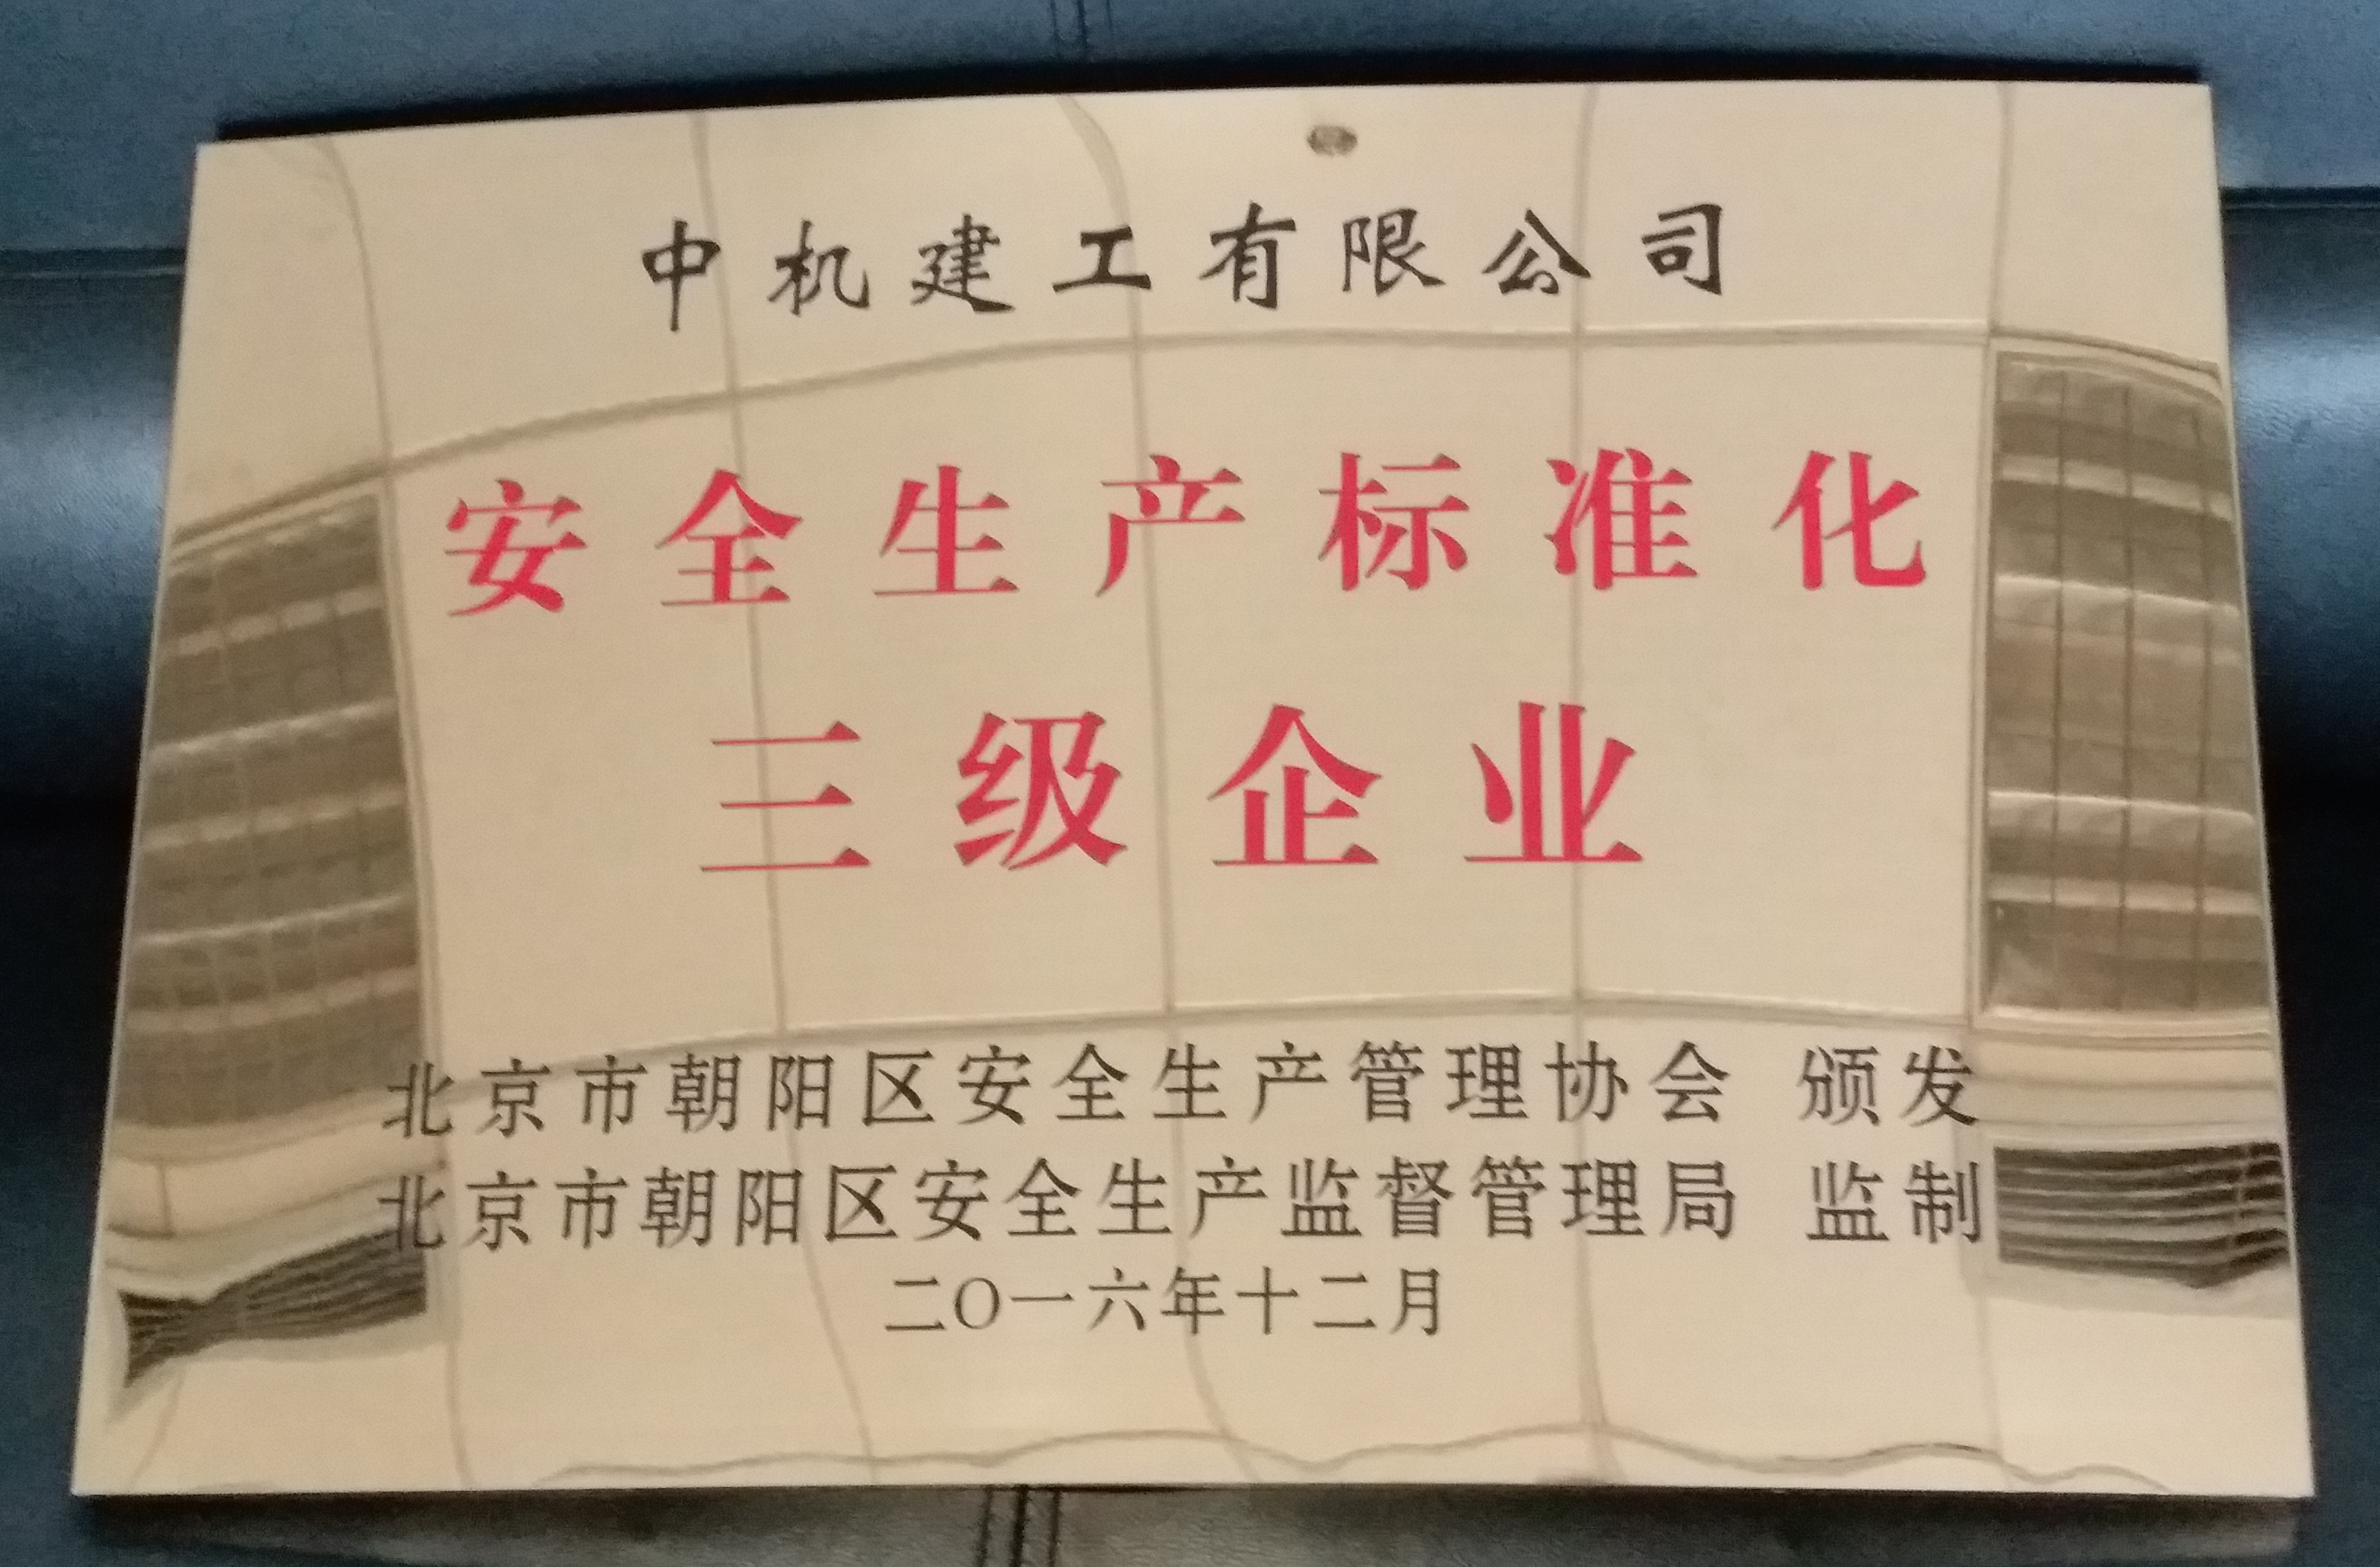 中机建工有限公司
安全生产标准化
三级企业
北京市朝阳区安全生产管理协会 颁发
北京市朝阳区安全生产监督管理局 监制
二〇一六年十二月